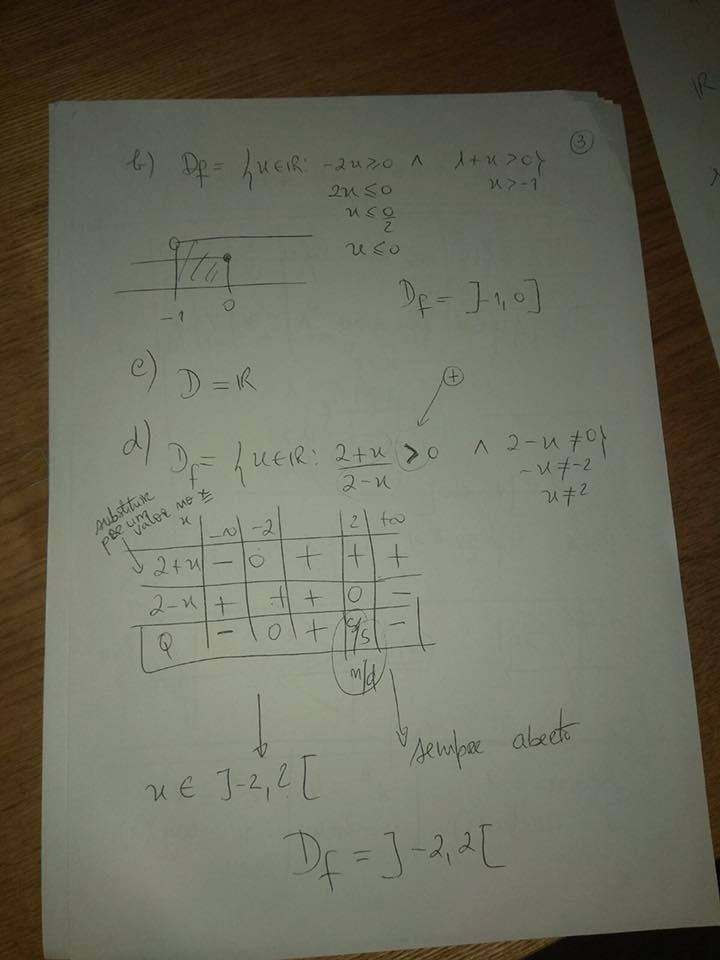 ③
b) Df = {x∈ℝ: -2x≥0 ∧ 1+x>0}
2x≤0 x>-1
x≤0/2
x≤0
-1 0
Df = ]-1,0]
c) D = ℝ
⊕
d) Df = {x∈ℝ: 2+x/2-x > 0 ∧ 2-x≠0}
-x≠-2
x≠2
substituir
por um
valor no
x
-∞ -2 2 +∞
2+x - 0 + + +
2-x + + + 0 -
Q - 0 + s/s -
n/d
sempre aberto
x ∈ ]-2,2[
Df = ]-2,2[